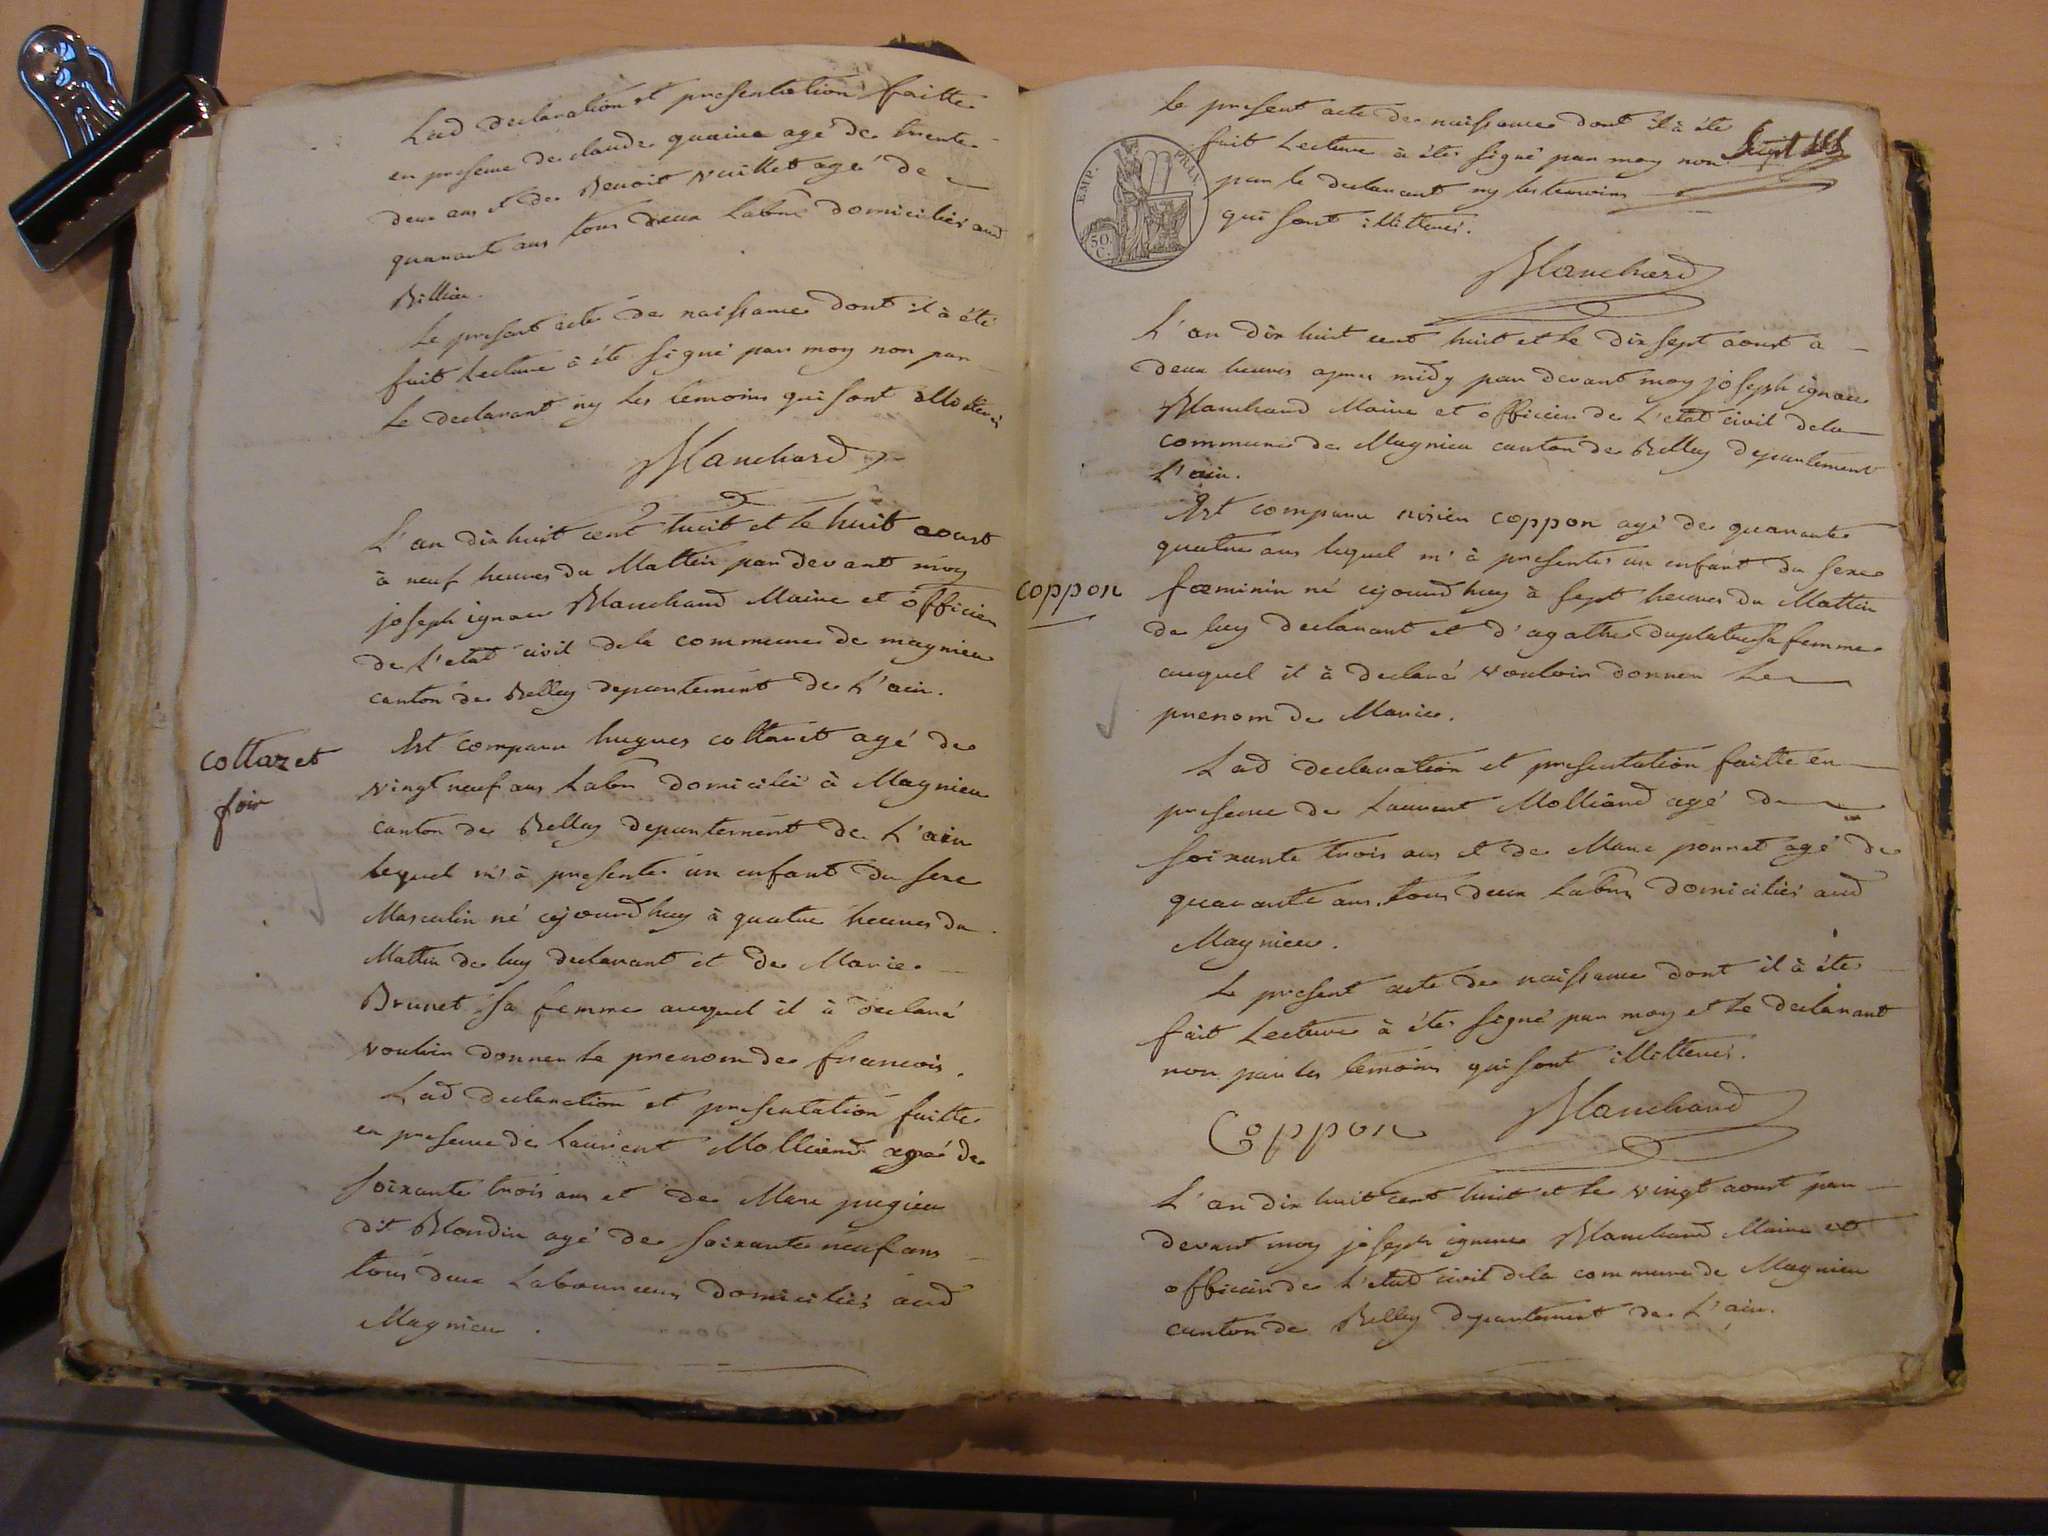 Lad declaration et presentation faitte
en presence de claude quaire agé de trente
deux ans et de Benoit vuillet agé de
quarant ans tous deux labrs domiciliés aud
Billieu.
Le present acte de naissance dont il à été
fait Lecture à été signé par moy non par
le declarant ny les temoins qui sont illitterés
Blanchard
L'an dix huit cent huit et le huit aoust
à neuf heures du Mattin par devant moy
joseph ignace Blanchard Maire et officier
de L'etat civil dela commune de magnieu
canton de Belley departement de L'ain.
collaret
foir
Est comparu hugues collaret agé de
vingt neuf ans Labr domicilié à Magnieu
canton de Belley departement de L'ain
lequel m'à presenté un enfant du sexe
Masculin né cejourd huy à quatre heures du
Mattin de luy declarant et de Marie
Brunet sa femme auquel il à declaré
vouloir donner le prenom de francois.
Lad declaration et presentation faitte
en presence de Laurent Molliand agé de
soixante trois ans et de Marc pugieu
dit Blondin agé de soixante neuf ans
tous deux Laboureurs domiciliés aud
Magnieu.
Le present acte de naissance dont il à été
fait Lecture à été signé par moy non
par le declarant ny les temoins
qui sont illitterés.
EMP. FRAN.
50.
C.
Blanchard
L'an dix huit cent huit et le dix sept aoust a
deux heures apres midy par devant moy joseph ignace
Blanchard Maire et officier de L'etat civil dela
commune de Magnieu canton de Belley departement
L'ain.
coppon
Est comparu coppon agé de quarante
quatre ans lequel m'à presenté un enfant du sexe
fœminin né cejourd huy à sept heures du Mattin
de luy declarant et d'agathe duplatre sa femme
auquel il à declaré vouloir donner Le
prenom de Marie.
Lad declaration et presentation faitte en
presence de Laurent Molliand agé de
soixante trois ans et de Marc ponnet agé de
quarante ans tous deux Labrs domiciliés aud
Magnieu.
Le present acte de naissance dont il à été
fait Lecture à été signé par moy et le declarant
non par les temoins qui sont illitterés.
Coppon Blanchard
L'an dix huit cent huit et le vingt aoust par
devant moy joseph ignace Blanchard Maire et
officier de L'etat civil dela commune de Magnieu
canton de Belley departement de L'ain.